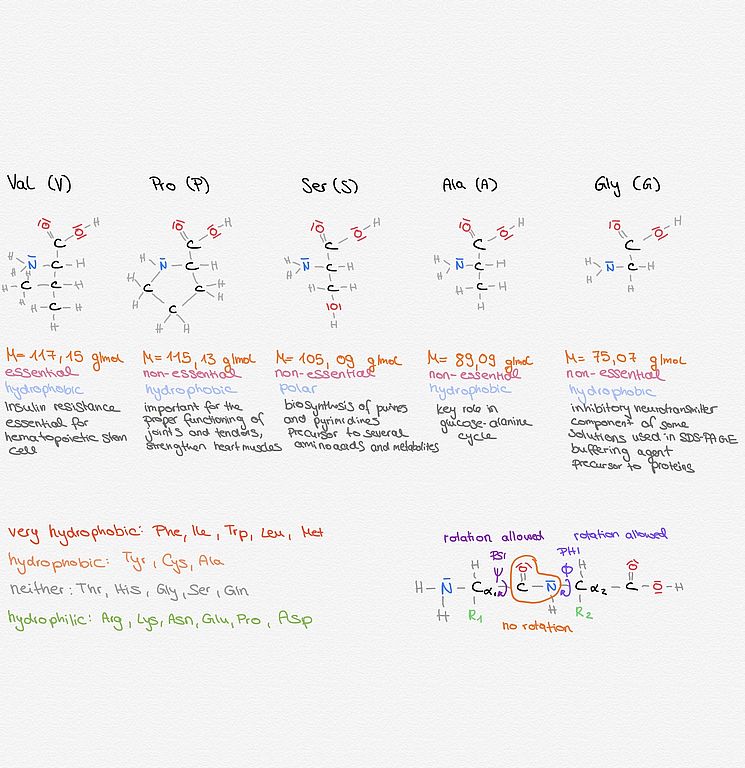 Val (V)
Pro (P)
Ser (S)
Ala (A)
Gly (G)
M= 117,15 g/mol
essential
hydrophobic
insulin resistance
essential for
hematopoietic stem
cell
M= 115,13 g/mol
non-essential
hydrophobic
important for the
proper functioning of
joints and tendons,
strengthen heart muscles
M= 105,09 g/mol
non-essential
polar
biosynthesis of purines
and pyrimidines
precursor to several
aminoacids and metabolites
M= 89,09 g/mol
non-essential
hydrophobic
key role in
glucose-alanine
cycle
M= 75,07 g/mol
non-essential
hydrophobic
inhibitory neurotransmitter
component of some
solutions used in SDS-PAGE
buffering agent
precursor to proteins
very hydrophobic: Phe, Ile, Trp, Leu, Met
hydrophobic: Tyr, Cys, Ala
neither: Thr, His, Gly, Ser, Gln
hydrophilic: Arg, Lys, Asn, Glu, Pro, Asp
rotation allowed
rotation allowed
PSI
PHI
Ψ
Φ
H
H
H - N - Cα,1 - C - N - Cα,2 - C - O - H
H
R1
H
R2
no rotation